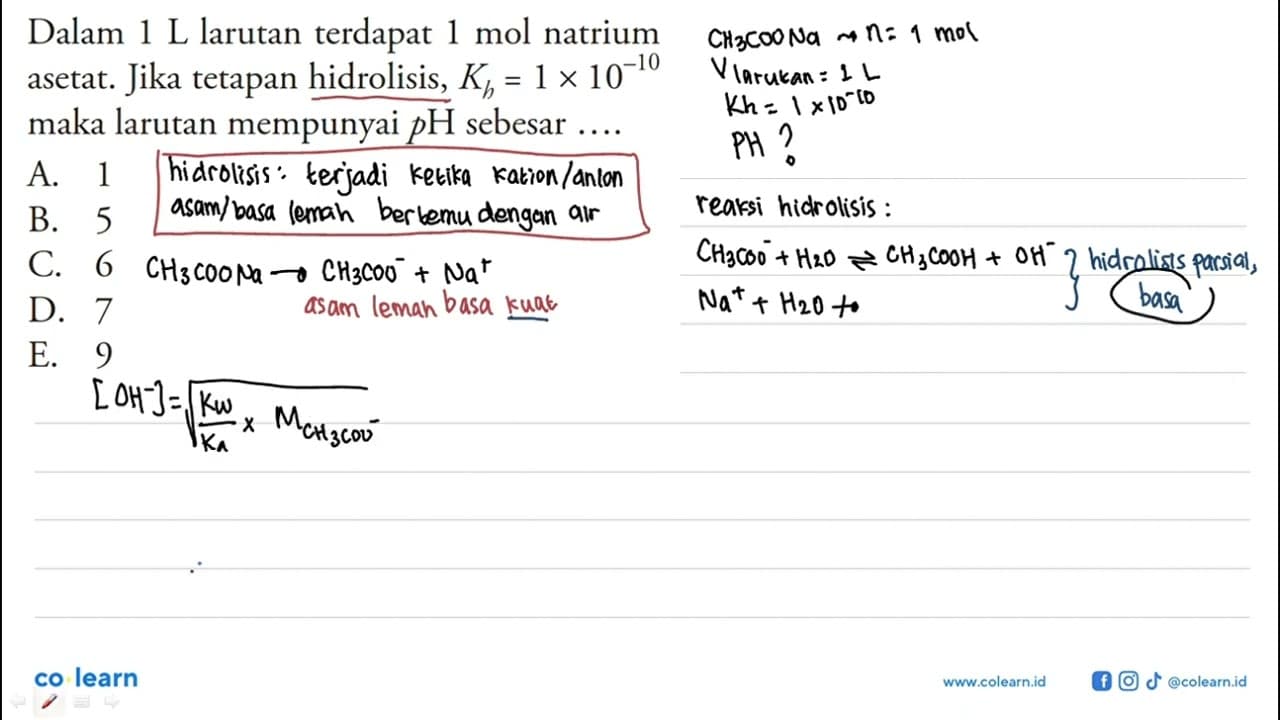 Dalam 1 L larutan terdapat 1 mol natrium
asetat. Jika tetapan hidrolisis, Kh = 1 × 10⁻¹⁰
maka larutan mempunyai pH sebesar ....
A. 1
B. 5
C. 6
D. 7
E. 9
hidrolisis: terjadi ketika kation/anion
asam/basa lemah bertemu dengan air
CH3COONa → CH3COO⁻ + Na⁺
asam lemah basa kuat
[OH⁻] = √Kw/Ka × M CH3COO⁻
CH3COONa → n = 1 mol
V larutan = 1 L
Kh = 1 × 10⁻¹⁰
PH ?
reaksi hidrolisis :
CH3COO⁻ + H2O ⇌ CH3COOH + OH⁻
Na⁺ + H2O ↛
hidrolisis parsial,
basa
co learn
www.colearn.id
@colearn.id